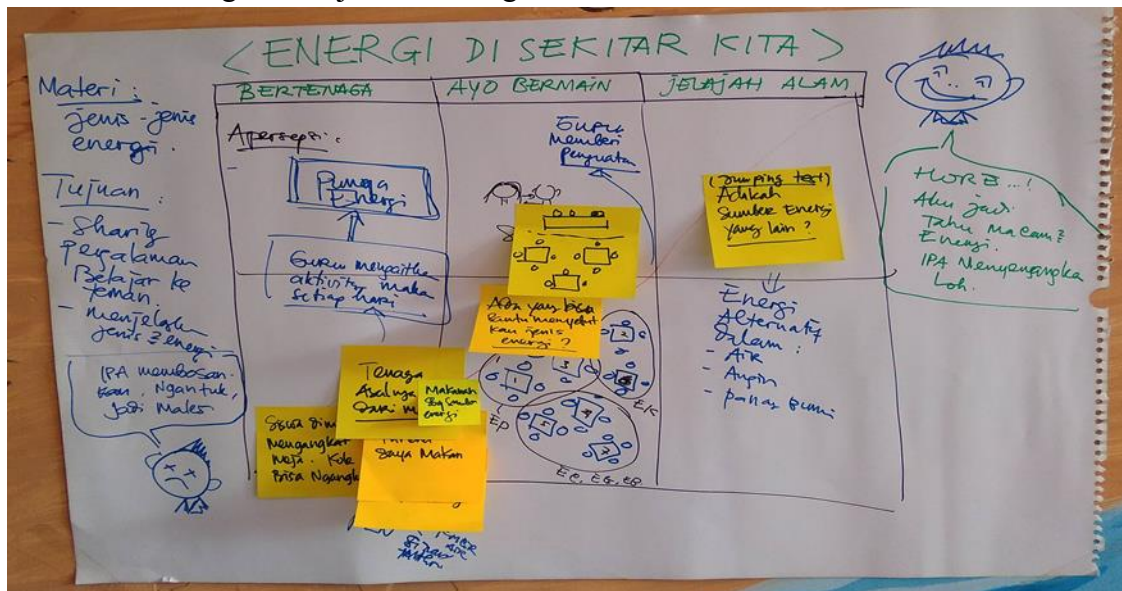 < ENERGI DI SEKITAR KITA >
Materi :
jenis-jenis
energi.
Tujuan :
- Sharing
Pengalaman
Belajar ke
teman.
- menjelaskan
jenis2 energi
IPA membosan-
kan, Ngantuk,
Jadi Males
BERTENAGA
Apersepsi :
-
Punya
Energi
Guru mengaitkan
aktivitas makan
setiap hari
Tenaga
Asalnya
Dari
Makanan
sbg sumber
energi
Siswa
Mengangkat
Meja. Kok
Bisa
Saya Makan
AYO BERMAIN
Guru
Memberi
Penguatan
Ada yang bisa
bantu menyebut
kan jenis
energi ?
1
3
2
7
EK
EP
JELAJAH ALAM
(Jumping test)
Adakah
Sumber Energi
yang lain ?
Energi
Alternatif
Dalam :
- Air
- Angin
- panas Bumi
HORE...!
Aku jadi
Tahu Macam2
Energi.
IPA Menyenangkan
Loh.